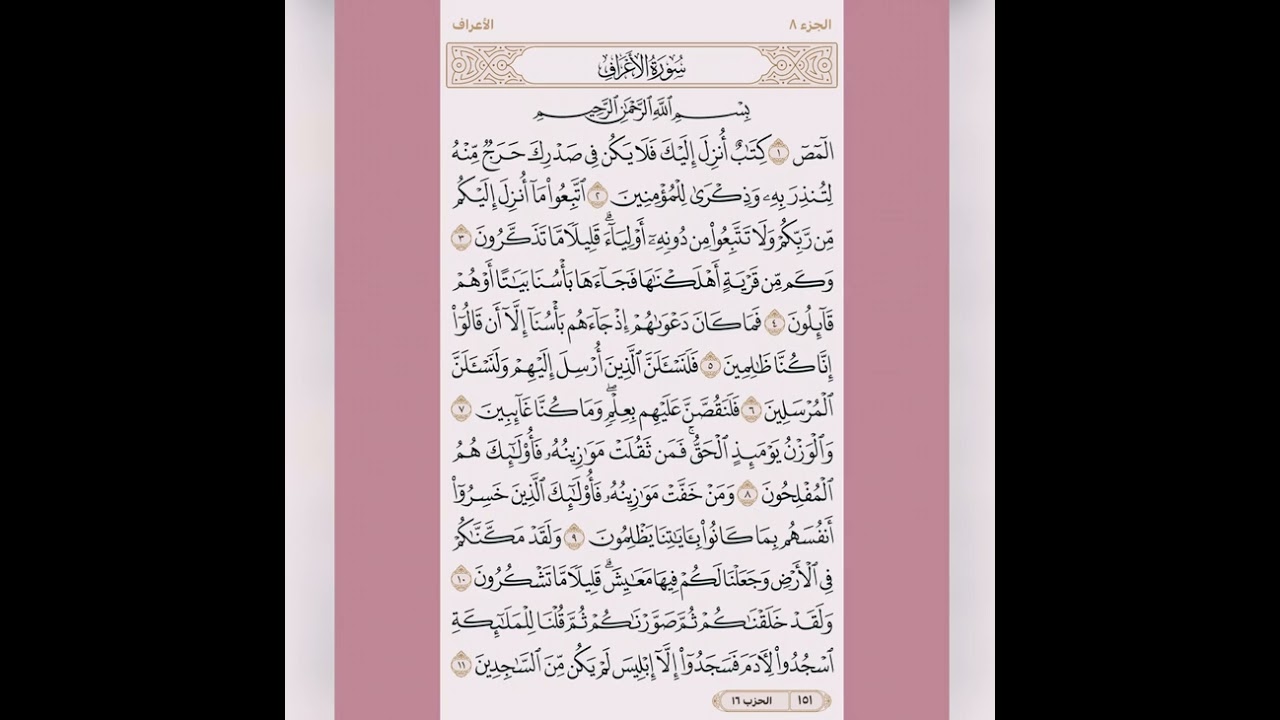 الجزء ٨
الأعراف
سُورَةُ الأَعْرَافِ
بِسْمِ اللَّهِ الرَّحْمَٰنِ الرَّحِيمِ
الٓمٓصٓ ١ كِتَٰبٌ أُنزِلَ إِلَيْكَ فَلَا يَكُن فِى صَدْرِكَ حَرَجٌ مِّنْهُ
لِتُنذِرَ بِهِۦ وَذِكْرَىٰ لِلْمُؤْمِنِينَ ٢ ٱتَّبِعُوا۟ مَآ أُنزِلَ إِلَيْكُم
مِّن رَّبِّكُمْ وَلَا تَتَّبِعُوا۟ مِن دُونِهِۦٓ أَوْلِيَآءَ ۗ قَلِيلًا مَّا تَذَكَّرُونَ ٣
وَكَم مِّن قَرْيَةٍ أَهْلَكْنَٰهَا فَجَآءَهَا بَأْسُنَا بَيَٰتًا أَوْ هُمْ
قَآئِلُونَ ٤ فَمَا كَانَ دَعْوَىٰهُمْ إِذْ جَآءَهُم بَأْسُنَآ إِلَّآ أَن قَالُوٓا۟
إِنَّا كُنَّا ظَٰلِمِينَ ٥ فَلَنَسْـَٔلَنَّ ٱلَّذِينَ أُرْسِلَ إِلَيْهِمْ وَلَنَسْـَٔلَنَّ
ٱلْمُرْسَلِينَ ٦ فَلَنَقُصَّنَّ عَلَيْهِم بِعِلْمٍ ۖ وَمَا كُنَّا غَآئِبِينَ ٧
وَٱلْوَزْنُ يَوْمَئِذٍ ٱلْحَقُّ ۚ فَمَن ثَقُلَتْ مَوَٰزِينُهُۥ فَأُو۟لَٰٓئِكَ هُمُ
ٱلْمُفْلِحُونَ ٨ وَمَنْ خَفَّتْ مَوَٰزِينُهُۥ فَأُو۟لَٰٓئِكَ ٱلَّذِينَ خَسِرُوٓا۟
أَنفُسَهُم بِمَا كَانُوا۟ بِـَٔايَٰتِنَا يَظْلِمُونَ ٩ وَلَقَدْ مَكَّنَّٰكُمْ
فِى ٱلْأَرْضِ وَجَعَلْنَا لَكُمْ فِيهَا مَعَٰيِشَ ۗ قَلِيلًا مَّا تَشْكُرُونَ ١٠
وَلَقَدْ خَلَقْنَٰكُمْ ثُمَّ صَوَّرْنَٰكُمْ ثُمَّ قُلْنَا لِلْمَلَٰٓئِكَةِ
ٱسْجُدُوا۟ لِـَٔادَمَ فَسَجَدُوٓا۟ إِلَّآ إِبْلِيسَ لَمْ يَكُن مِّنَ ٱلسَّٰجِدِينَ ١١
١٥١ الحزب ١٦